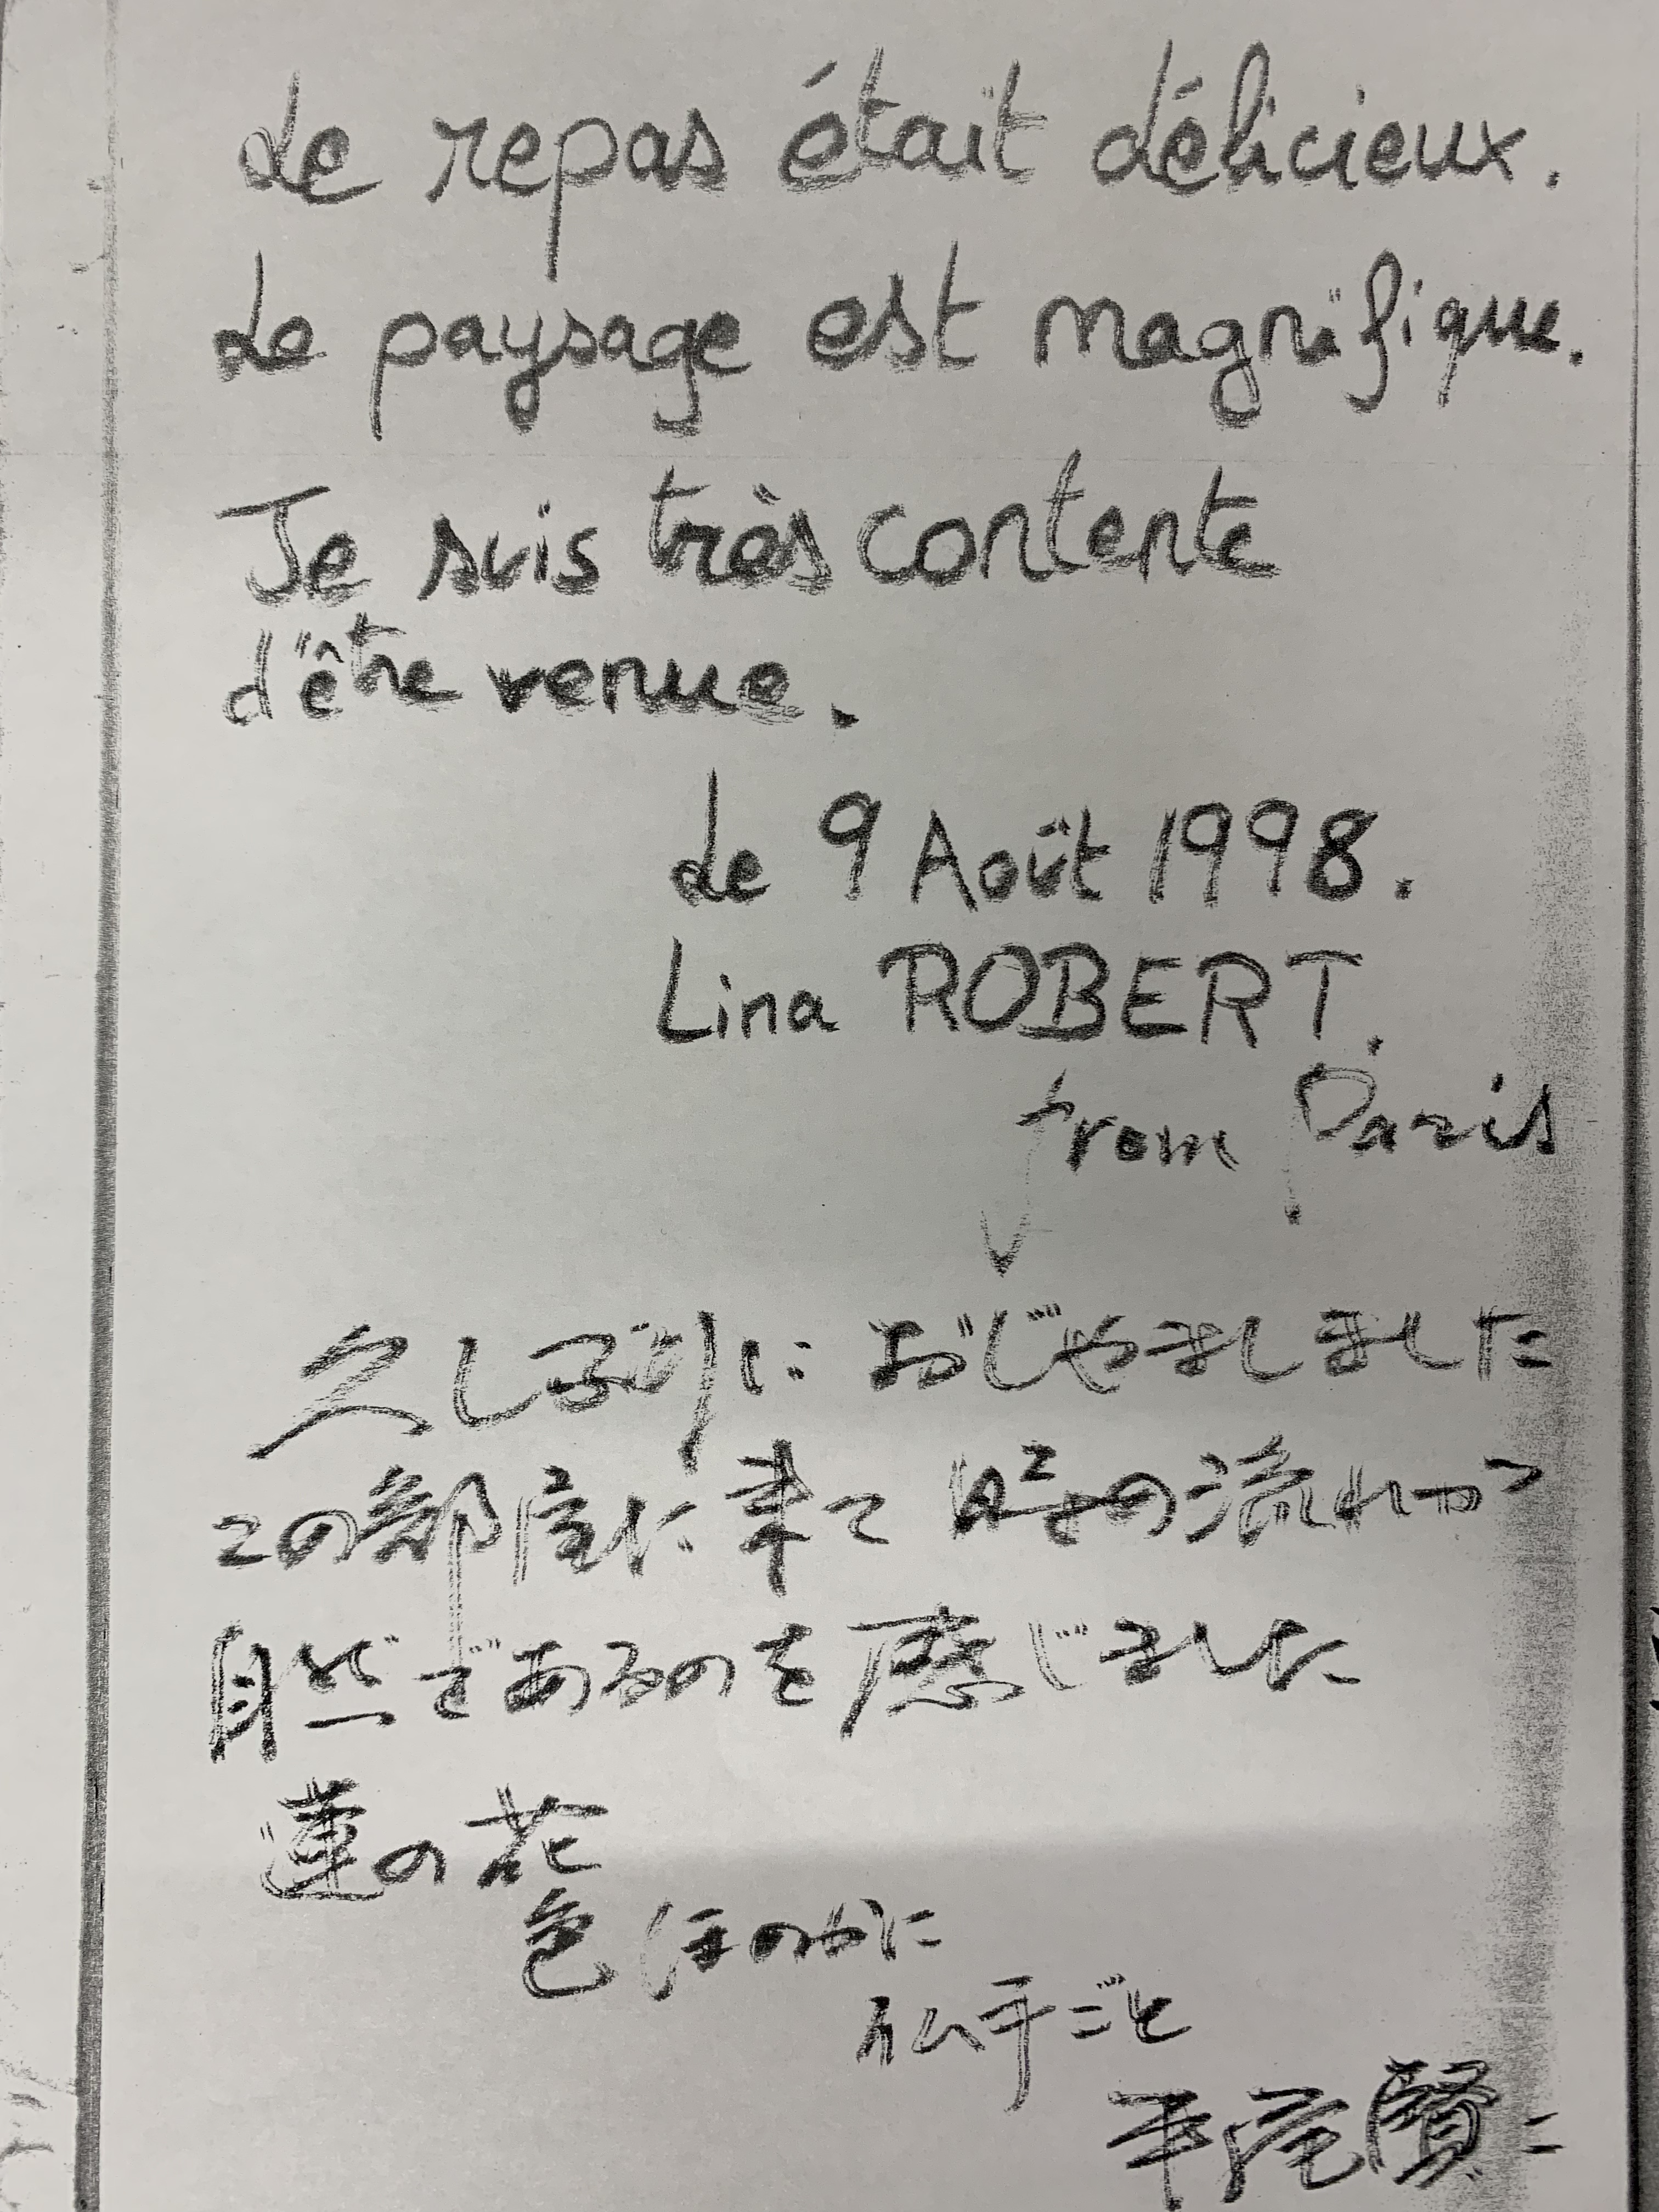 Le repas était délicieux.
Le paysage est magnifique.
Je suis très contente
d'être venue.
Le 9 Août 1998.
Lina ROBERT.
from Paris
久しぶりにおじゃましました
この部屋に来て時の流れって
自然であるのを感じました
蓮の花
色ほのかに
仏手ごと
平尾賢二